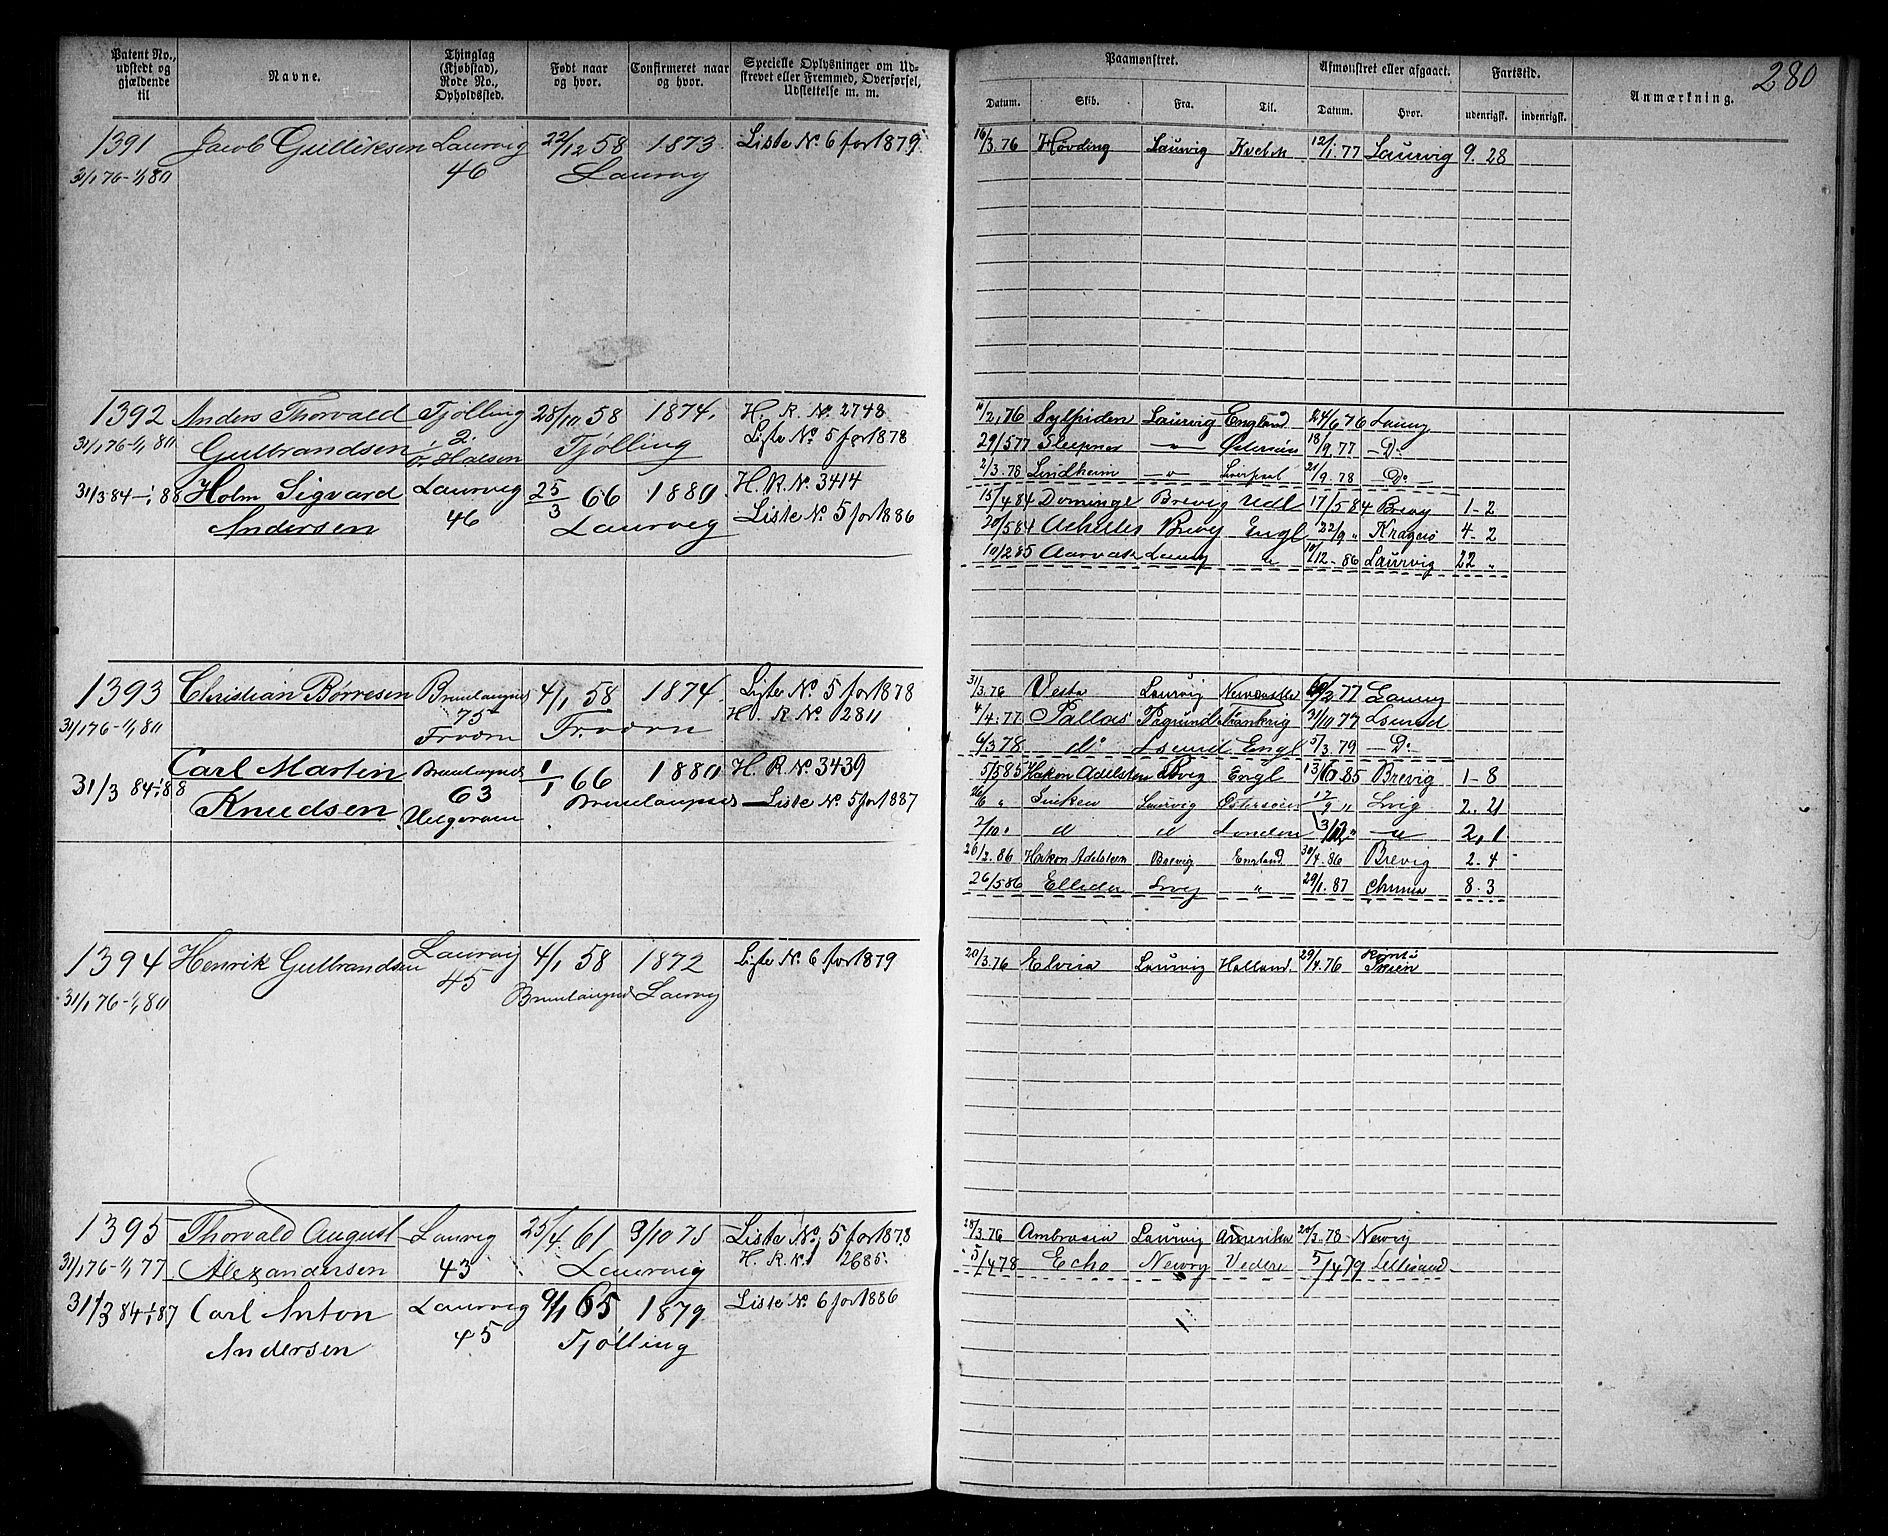 280
Patent No., udstedt og gjældende til
Navne.
Thinglag (Kjøbstad), Rode No., Opholdssted.
Født naar og hvor.
Confirmeret naar og hvor.
Specielle Oplysninger om Udskrevet eller Fremmed, Overførsel, Udslettelse m. m.
Paamønstret.
Datum. Skib. Fra. Til.
Afmønstret eller afgaaet.
Datum. Hvor.
Fartstid.
udenrigsk. indenrigsk.
Anmærkning.
1391 Jacob Gulliksen Laurvig 22/12 58 1873 Liste No. 6 for 1879
31/1 76-1/1 80 46 Laurvig
16/3.76 Høvding Laurvig 12/1.77 Laurvig 9. 28
1392 Anders Thorvald Tjølling 28/10 58 1874. H. R. No. 2748
31/1 76-1/1 80 Gulbrandsen 2. Ø. Halsen Tjølling Liste No. 5 for 1878
31/3 84-1/1 88 Holm Sigvard Laurvig 25/3 66 1880 H. R. No. 3414
Andersen 46 Laurvig Liste No. 5 for 1886
11/2.76 Sylphiden Laurvig England 24/6 76 Laurvig
29/5 77 Sleipner -"- Østersøen 18/9.77 -Do-
2/3.78 Lindheim -"- Liverpool 21/9.78 -Do-
15/4 84 Domingo Brevig Udl 17/5 84 Brevig 1-2
20/5 84 Achilles Brevig Engl 22/9 " Kragerø 4-2
10/2 85 Laurvig " 10/12.86 Laurvig 22 "
1393 Christian Børresen Brunlangnes 4/1 58 1874. Liste No. 5 for 1878
31/1 76-1/1 80 75 Fræørn H. R. No. 2811
31/3 84-1/1 88 Carl Martin Brunlangnes 1/1 66 1880 H. R. No. 3439
Knudsen 63 Helgeraaen Brunlangnes Liste No. 5 for 1887
31/3.76 Vesta Laurvig Newcastle 2.77 Laurvig
4/4.77 Pallas Porsgrund 31/10 77 Lsund
4/3 78 do Lsund Engl 5/3.79 -Do-
5/5 85 Hakon Adelsten Bvig Engl 85 Brevig 1-8
26/6 " Laurvig Østersøen 17/9 " Lvig 2. 21
7/10 " d d London " -d 2, 1
20/2.86 Hakon Adelsteen Brevig England 30/4.86 Brevig 2-4
26/5 86 Ellida Lvig " 29/1.87 8.3
1394 Henrik Gulbrandsen Laurvig 4/1 58 1872 Liste No. 6 for 1879
31/1 76-1/1 80 45 Brunlangnes Laurvig
20/3.76 Elvira Laurvig Holland. 29/4.76 Rømt i Skien
1395 Thorvald August Laurvig 25/4 61 3/10 75 Liste No. 5 for 1878
31/1 76-1/1 77 Alexandersen 43 Laurvig H. R. No. 2685.
31/3 84-1/1 87 Carl Anton Laurvig 9/1 65 1879 Liste No. 6 for 1886
Andersen 45 Tjølling
28/3.76 Ambrosia Laurvig Amerika 20/3.78 Newry
5/4 78 Echo Newry Vedere 5/4 79 Lillesand